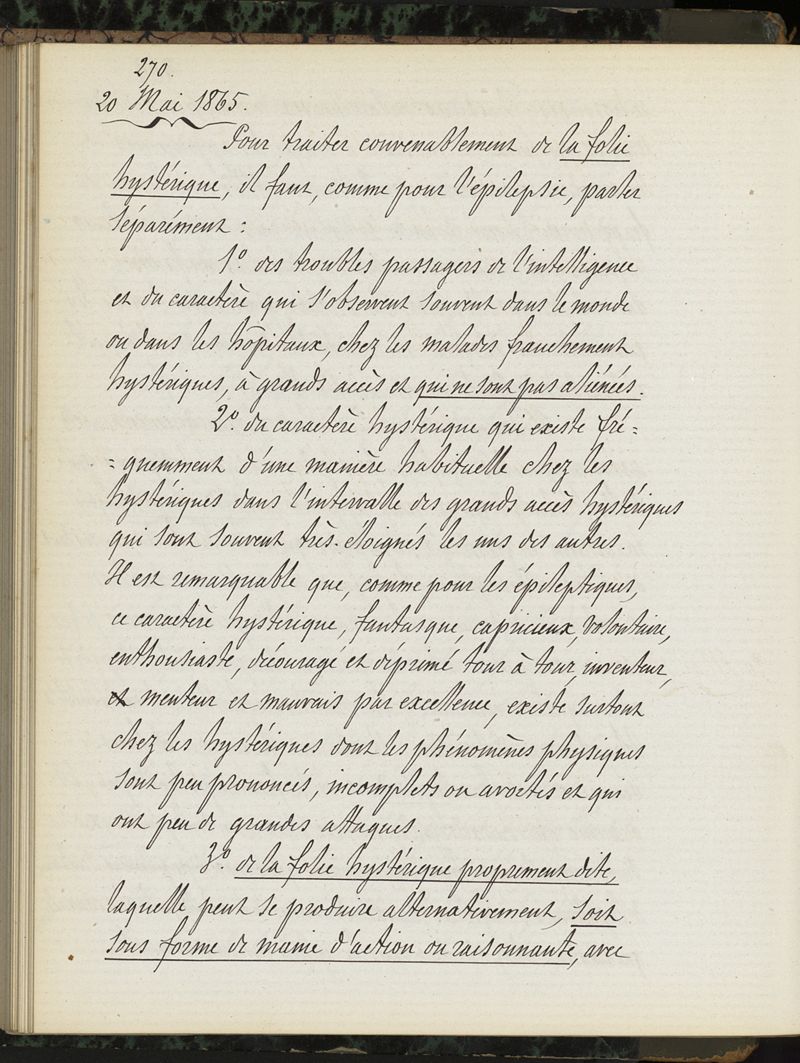 270.
20 Mai 1865.
Pour traiter convenablement de la folie
hystérique, il faut, comme pour l'épilepsie, parler
séparément :
1º. des troubles passagers de l'intelligence
et du caractère qui s'observent souvent dans le monde
ou dans les hôpitaux, chez les malades franchement
hystériques, à grands accès et qui ne sont pas aliénées.
2º. du caractère hystérique qui existe fré=
=quemment d'une manière habituelle chez les
hystériques dans l'intervalle des grands accès hystériques
qui sont souvent très-éloignés les uns des autres.
Il est remarquable que, comme pour les épileptiques,
ce caractère hystérique, fantasque, capricieux, volontaire,
enthousiaste, découragé et déprimé tour à tour, inventeur,
et menteur et mauvais par excellence, existe surtout
chez les hystériques dont les phénomènes physiques
sont peu prononcés, incomplets ou avortés et qui
ont peu de grandes attaques.
3º. de la folie hystérique proprement dite,
laquelle peut se produire alternativement, soit
sous forme de manie d'action ou raisonnante, avec